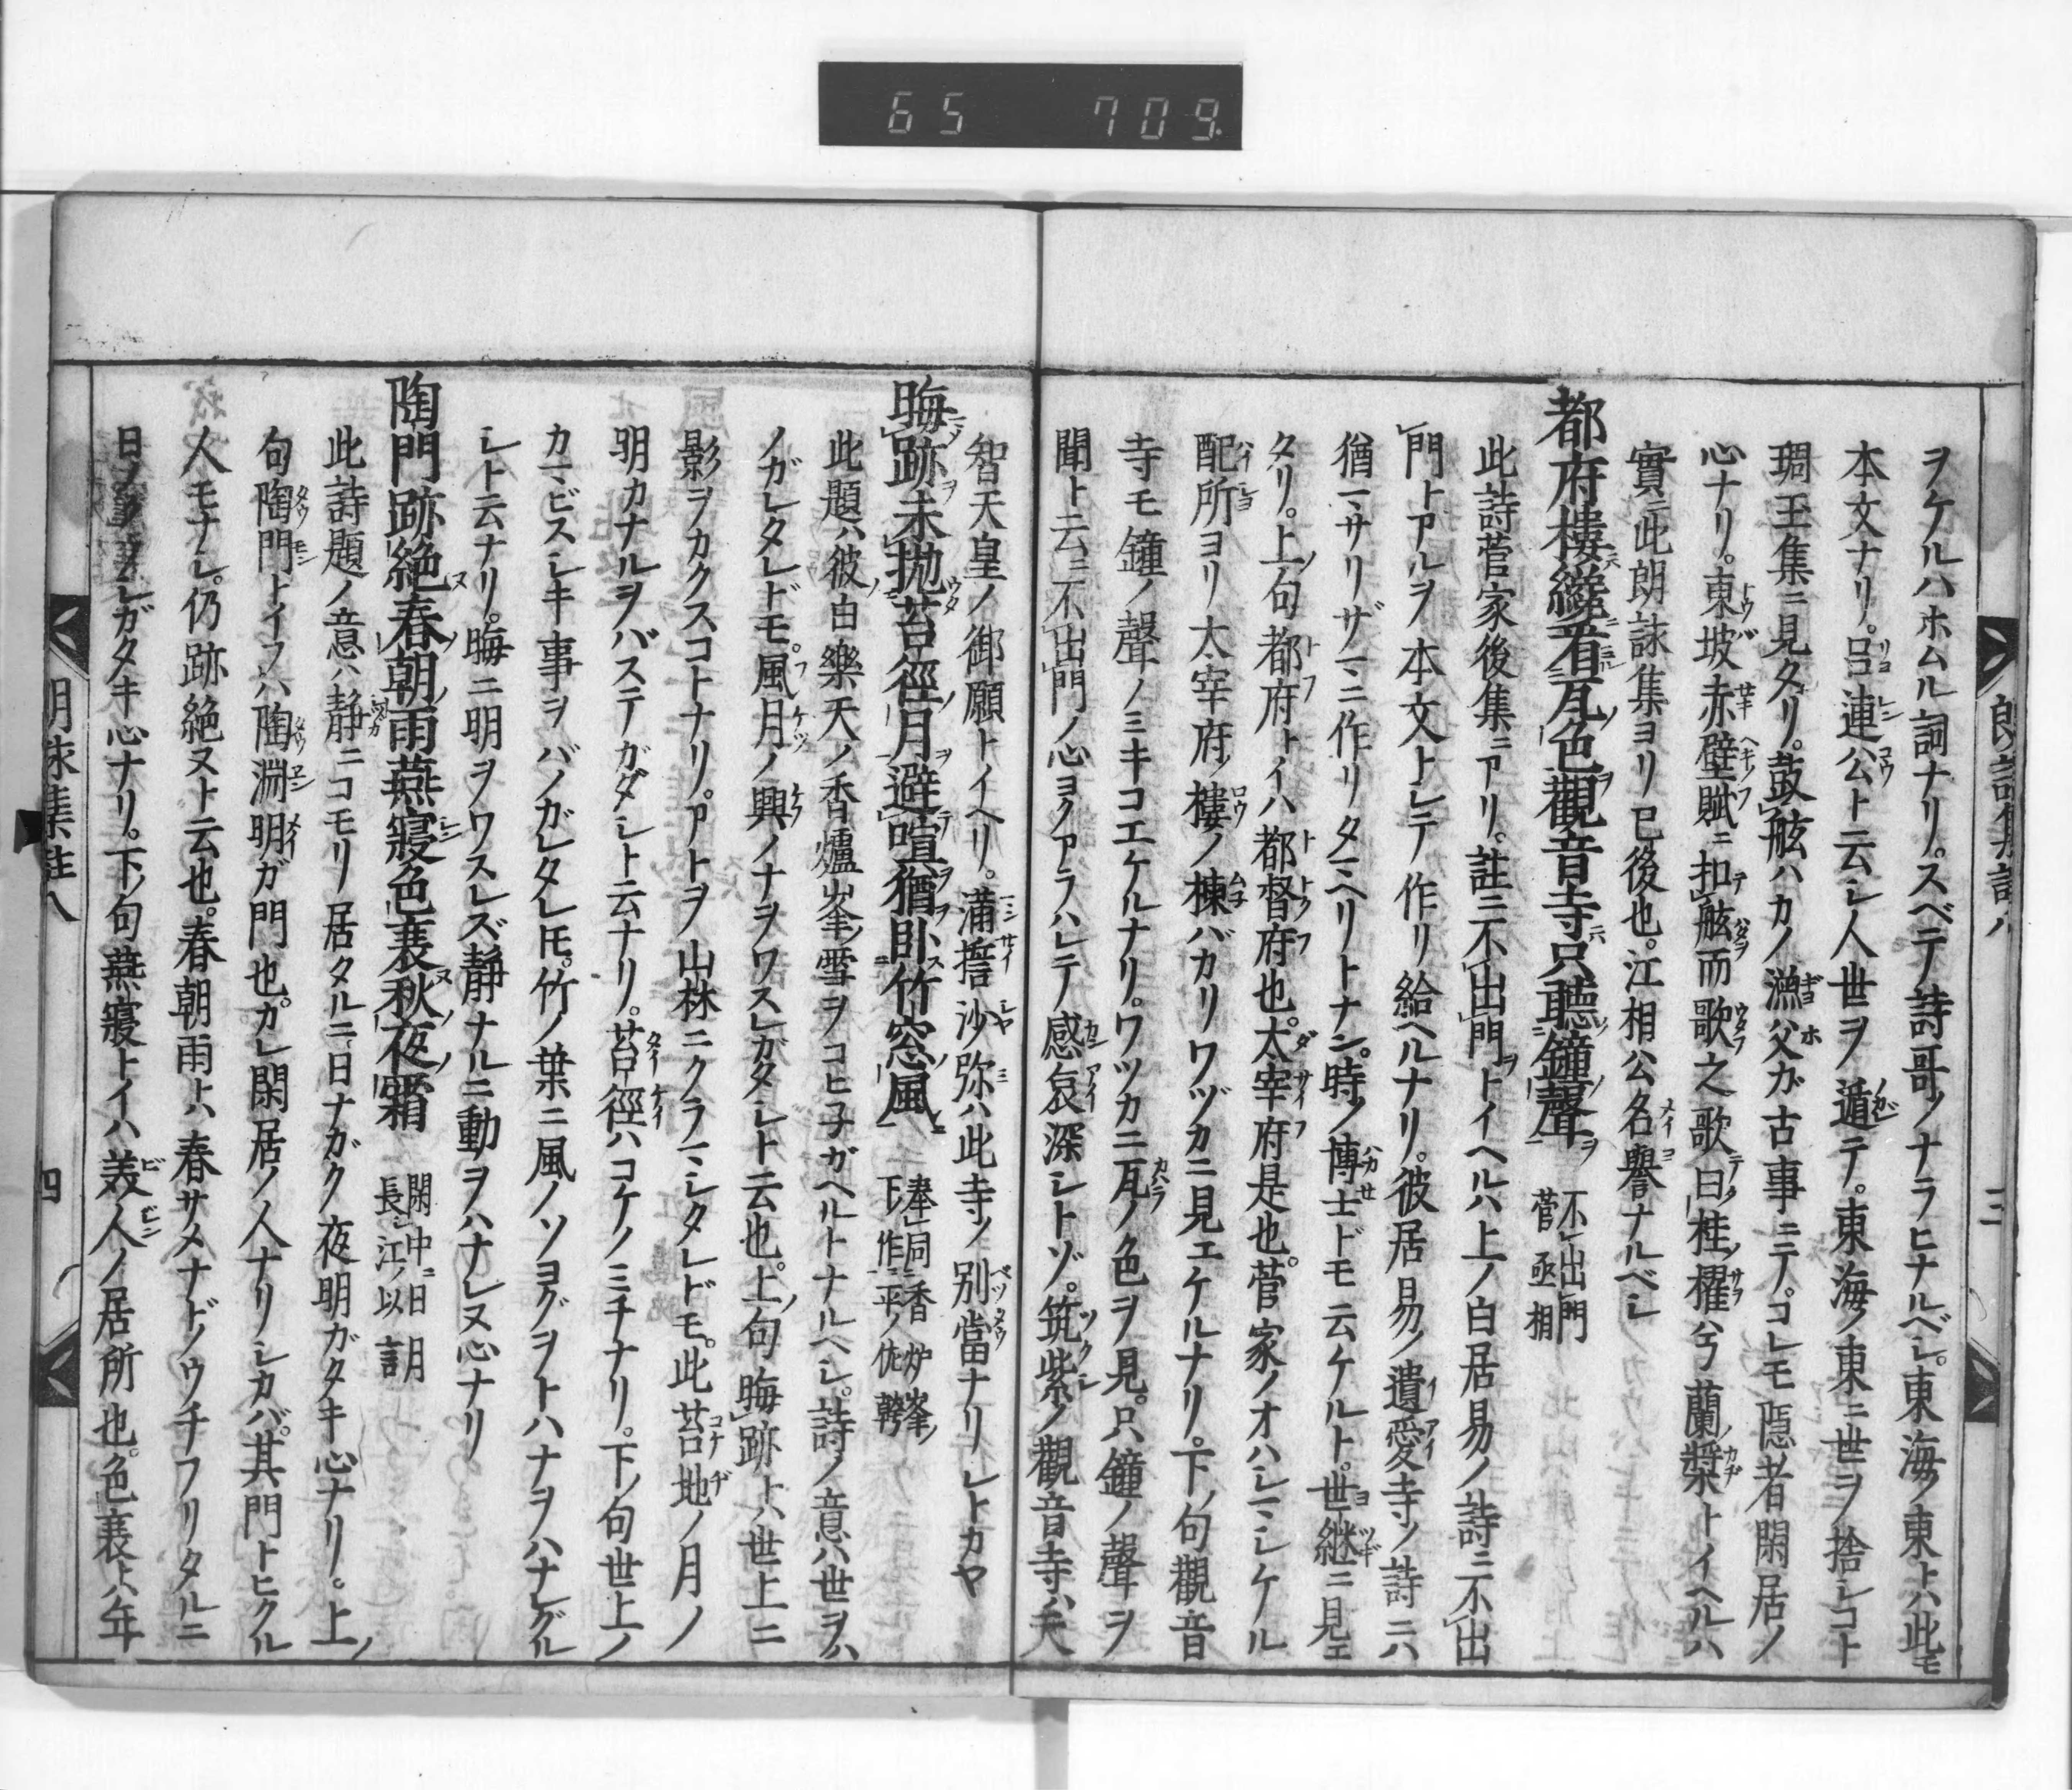 65 709
ヲケルハホムル詞ナリ。スベテ詩哥ノナラヒナルベシ。東海ノ東トハ此モ
本文ナリ。呂連公ト云シ人世ヲ遁テ。東海ノ東ニ世ヲ捨シコト
琱玉集ニ見タリ。鼓舷ハカノ漁父ガ古事ニテノコレモ隠者閑居ノ
心ナリ。東坡赤壁賦ニ扣舷而歌之歌曰桂ノ櫂兮蘭ノ槳トイヘルハ
實ニ此朗詠集ヨリ已後也。江相公名譽ナルベシ
都府樓纔看瓦色觀音寺只聽鐘聲 不出門 菅丞相
此詩菅家後集ニアリ。註ニ不出門トイヘルハ上ノ白居易ノ詩ニ不出
門トアルヲ本文トシテ作リ給ヘルナリ。彼居易ノ遺愛寺ノ詩ニハ
猶マサリザマニ作リタマヘリトナン。時ノ博士ドモ云ケルト。世継ニ見エ
タリ。上ノ句都府トイハ都督府也。太宰府是也。菅家ノオハシマシケル
配所ヨリ太宰府ノ樓ノ棟バカリワヅカニ見エケルナリ。下ノ句觀音
寺モ鐘ノ聲ノミキコエケルナリ。ワツカニ瓦ノ色ヲ見。只鐘ノ聲ヲ
聞ト云ニ不出門ノ心ヨクアラハレテ感哀深シトゾ。筑紫ノ觀音寺ハ天
智天皇ノ御願トイヘリ。滿誓沙弥ハ此寺ノ別當ナリシトカヤ
晦跡未抛苔徑月避喧猶臥竹窓風 奉同香炉峯下作 平佐幹
此題ハ彼白樂天ノ香爐峯ノ雪ヲコヒ子ガヘルトナルヘシ。詩ノ意ハ世ヲハ
ノガレタレドモ。風月ノ興ノナヲワスレガタシト云也。上ノ句晦跡トハ世上ニ
影ヲカクスコトナリ。アトヲ山林ニクラマシタレドモ。此苔地ノ月ノ
明カナルヲバステガタシト云ナリ。苔徑ハコケノミチナリ。下ノ句世上ノ
カマビスシキ事ヲバノガレタレ𪜈。竹ノ葉ニ風ノソヨグヲトハナヲハナレグル
シト云ナリ。晦ニ明ヲワスレズ靜ナルニ動ヲハナレヌ心ナリ
陶門跡絶春朝雨燕寢色衰秋夜霜 閑中日月長 江以言
此詩題ノ意ハ静ニコモリ居タルニ日ナガク夜明ガタキ心ナリ。上ノ
句陶門トイフハ陶淵明ガ門也。カレ閑居ノ人ナリシカバ。其門トヒクル
人モナシ。仍跡絶ヌト云也。春朝雨トハ春サメナドノウチフリタルニ
日ノクレガタキ心ナリ。下ノ句燕寢トイハ美人ノ居所也。色衰トハ年
三
四